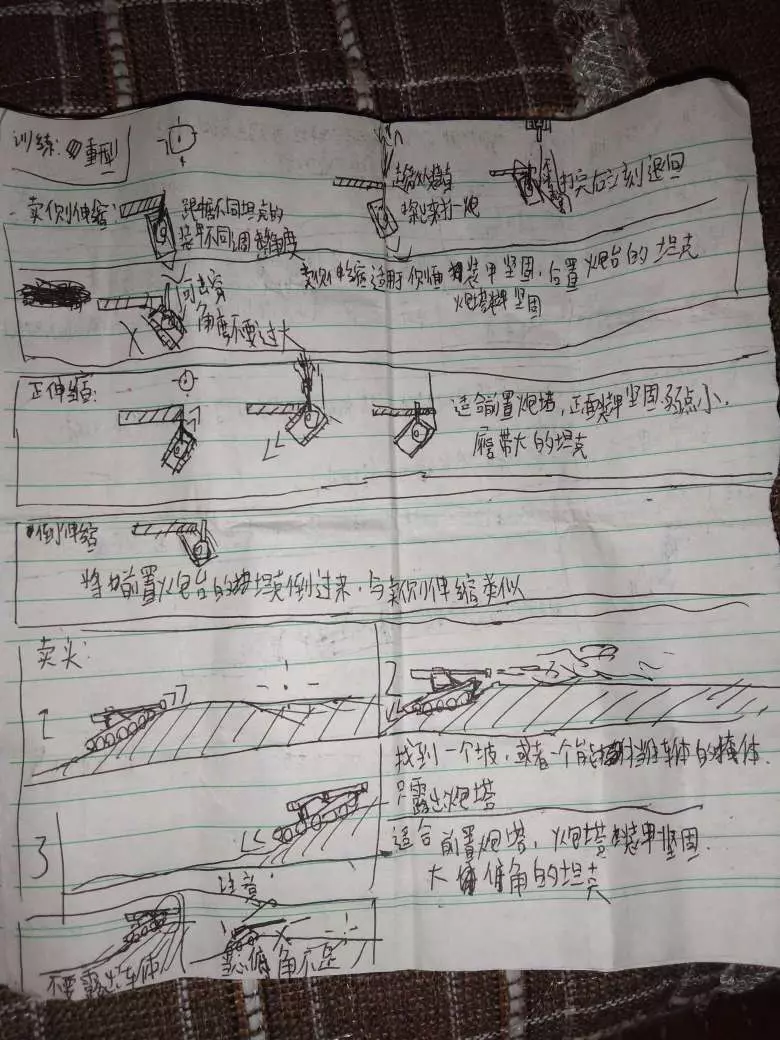 训练: 重型
卖侧伸缩:
跟据不同坦克的
装甲不同调整角度
探头打一炮
打完后立刻退回
可击穿
角度不要过大
卖侧伸缩适用于侧面装甲坚固,后置炮台的坦克
炮塔装甲坚固
正伸缩:
适合前置炮塔,正面装甲坚固弱点小.
履带大的坦克
倒伸缩
将前置炮台的坦克倒过来,与卖侧伸缩类似
卖头:
1
2
找到一个坡,或者一个能挡住车体的掩体.
只露出炮塔
3
适合前置炮塔,炮塔装甲坚固.
大俯角的坦克
注意
不要露出车体
当心俯角不足